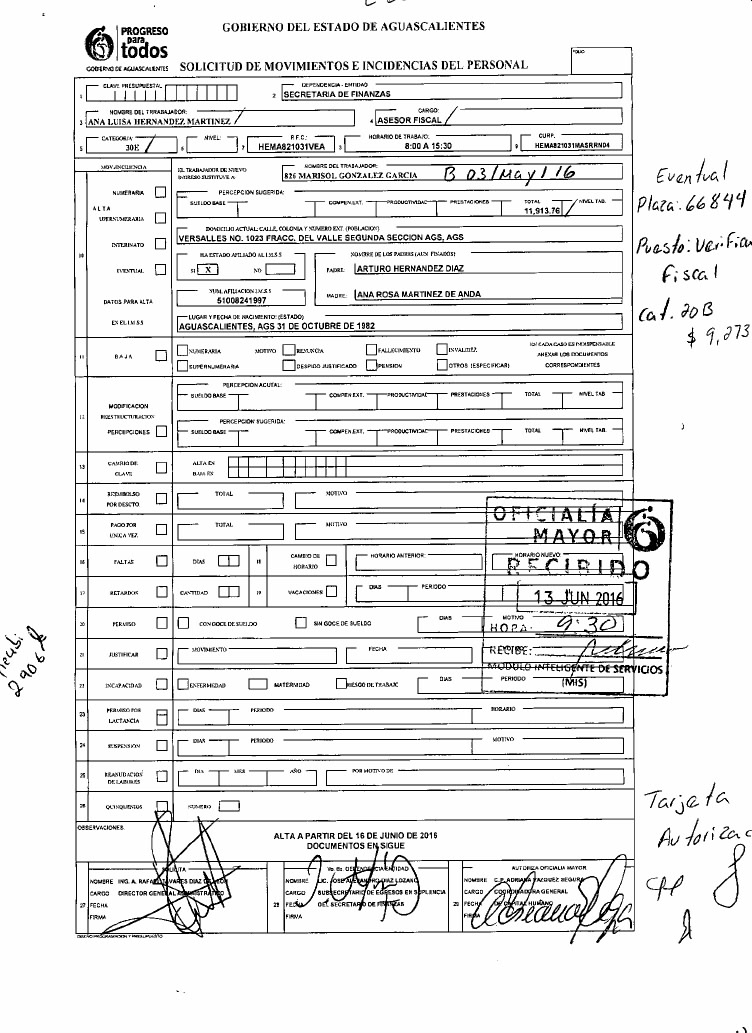 GOBIERNO DEL ESTADO DE AGUASCALIENTES
PROGRESO
para
todos
GOBIERNO DE AGUASCALIENTES
SOLICITUD DE MOVIMIENTOS E INCIDENCIAS DEL PERSONAL
FOLIO
1 CLAVE PRESUPUESTAL
2 DEPENDENCIA - ENTIDAD
SECRETARIA DE FINANZAS
3 NOMBRE DEL TRRABAJADOR:
ANA LUISA HERNANDEZ MARTINEZ
4 CARGO:
ASESOR FISCAL
5 CATEGORIA
30E
6 NIVEL:
7 R.F.C.:
HEMA821031VEA
HORARIO DE TRABAJO.
8:00 A 15:30
9 CURP.
HEMA821031MASRRN04
MOV.INCIDENCIA
EL TRABAJADOR DE NUEVO
INGRESO SUSTITUYE A:
NOMBRE DEL TRABAJADOR:
826 MARISOL GONZALEZ GARCIA B 03/May/16
Eventual
Plaza: 66844
Puesto: Verifi
Fiscal
Cat. 20B
$ 9,273
NUMERARIA
PERCEPCION SUGERIDA:
SUELDO BASE COMPEN.EXT. PRODUCTIVIDAD PRESTACIONES TOTAL NIVEL TAB.
11,913.76
ALTA
UPERNUMERARIA
DOMICILIO ACTUAL: CALLE, COLONIA Y NUMERO EXT. (POBLACION)
VERSALLES NO. 1023 FRACC. DEL VALLE SEGUNDA SECCION AGS, AGS
INTERINATO
10
HA ESTADO AFILIADO AL I.M.S.S
SI X NO
NOMBRE DE LOS PADRES (AUN FINADOS)
PADRE: ARTURO HERNANDEZ DIAZ
EVENTUAL
NUM. AFILIACION I.M.S.S
51008241997
MADRE: ANA ROSA MARTINEZ DE ANDA
DATOS PARA ALTA
EN EL I.M.S.S
LUGAR Y FECHA DE NACIMIENTO: (ESTADO)
AGUASCALIENTES, AGS 31 DE OCTUBRE DE 1982
11 BAJA
NUMERARIA MOTIVO RENUNCIA FALLECIMIENTO INVALIDEZ
SUPERNUMERARIA DESPIDO JUSTIFICADO PENSION OTROS (ESPECIFICAR)
EN CADA CASO ES INDISPENSABLE
ANEXAR LOS DOCUMENTOS
CORRESPONDIENTES
12 MODIFICACION
REESTRUCTURACION
PERCEPCIONES
PERCEPCION ACUTAL:
SUELDO BASE COMPEN.EXT. PRODUCTIVIDAD PRESTACIONES TOTAL NIVEL TAB.
PERCEPCION SUGERIDA:
SUELDO BASE COMPEN.EXT. PRODUCTIVIDAD PRESTACIONES TOTAL NIVEL TAB.
13 CAMBIO DE
CLAVE
ALTA EN
BAJA EN
14 REEMBOLSO
POR DESCTO
TOTAL MOTIVO
15 PAGO POR
UNICA VEZ
TOTAL MOTIVO
OFICIALIA
MAYOR
RECIBIDO
13 JUN 2016
HORA: 9:30
RECIBE:
MODULO INTELIGENTE DE SERVICIOS
(MIS)
16 FALTAS DIAS 18 CAMBIO DE
HORARIO
HORARIO ANTERIOR: HORARIO NUEVO:
17 RETARDOS CANTIDAD 19 VACACIONES DIAS PERIODO
20 PERMISO CON GOCE DE SUELDO SIN GOCE DE SUELDO DIAS MOTIVO
21 JUSTIFICAR MOVIMIENTO FECHA
22 INCAPACIDAD ENFERMEDAD MATERNIDAD RIESGO DE TRABAJO DIAS PERIODO
23 PERMISO POR
LACTANCIA
DIAS PERIODO HORARIO
24 SUSPENSION DIAS PERIODO MOTIVO
25 REANUDACION
DE LABORES
DIA MES AÑO POR MOTIVO DE
26 QUINQUENIOS NUMERO
OBSERVACIONES:
ALTA A PARTIR DEL 16 DE JUNIO DE 2016
DOCUMENTOS EN SIGUE
Tarjeta
Autorizac
SOLICITA
NOMBRE ING. A. RAFAEL
CARGO DIRECTOR GENERAL ADMINISTRATIVO
27 FECHA
FIRMA
Vo. Bo. DEPENDENCIA ENTIDAD
NOMBRE LIC. JOSE ALEJANDRO DIAZ LOZANO
CARGO SUBSECRETARIO DE EGRESOS EN SUPLENCIA
28 FECHA DEL SECRETARIO DE FINANZAS
FIRMA
AUTORIZA OFICIALIA MAYOR
NOMBRE C.P. ADRIANA VAZQUEZ SEGURA
CARGO COORDINADORA GENERAL
29 FECHA DE CAPITAL HUMANO
FIRMA